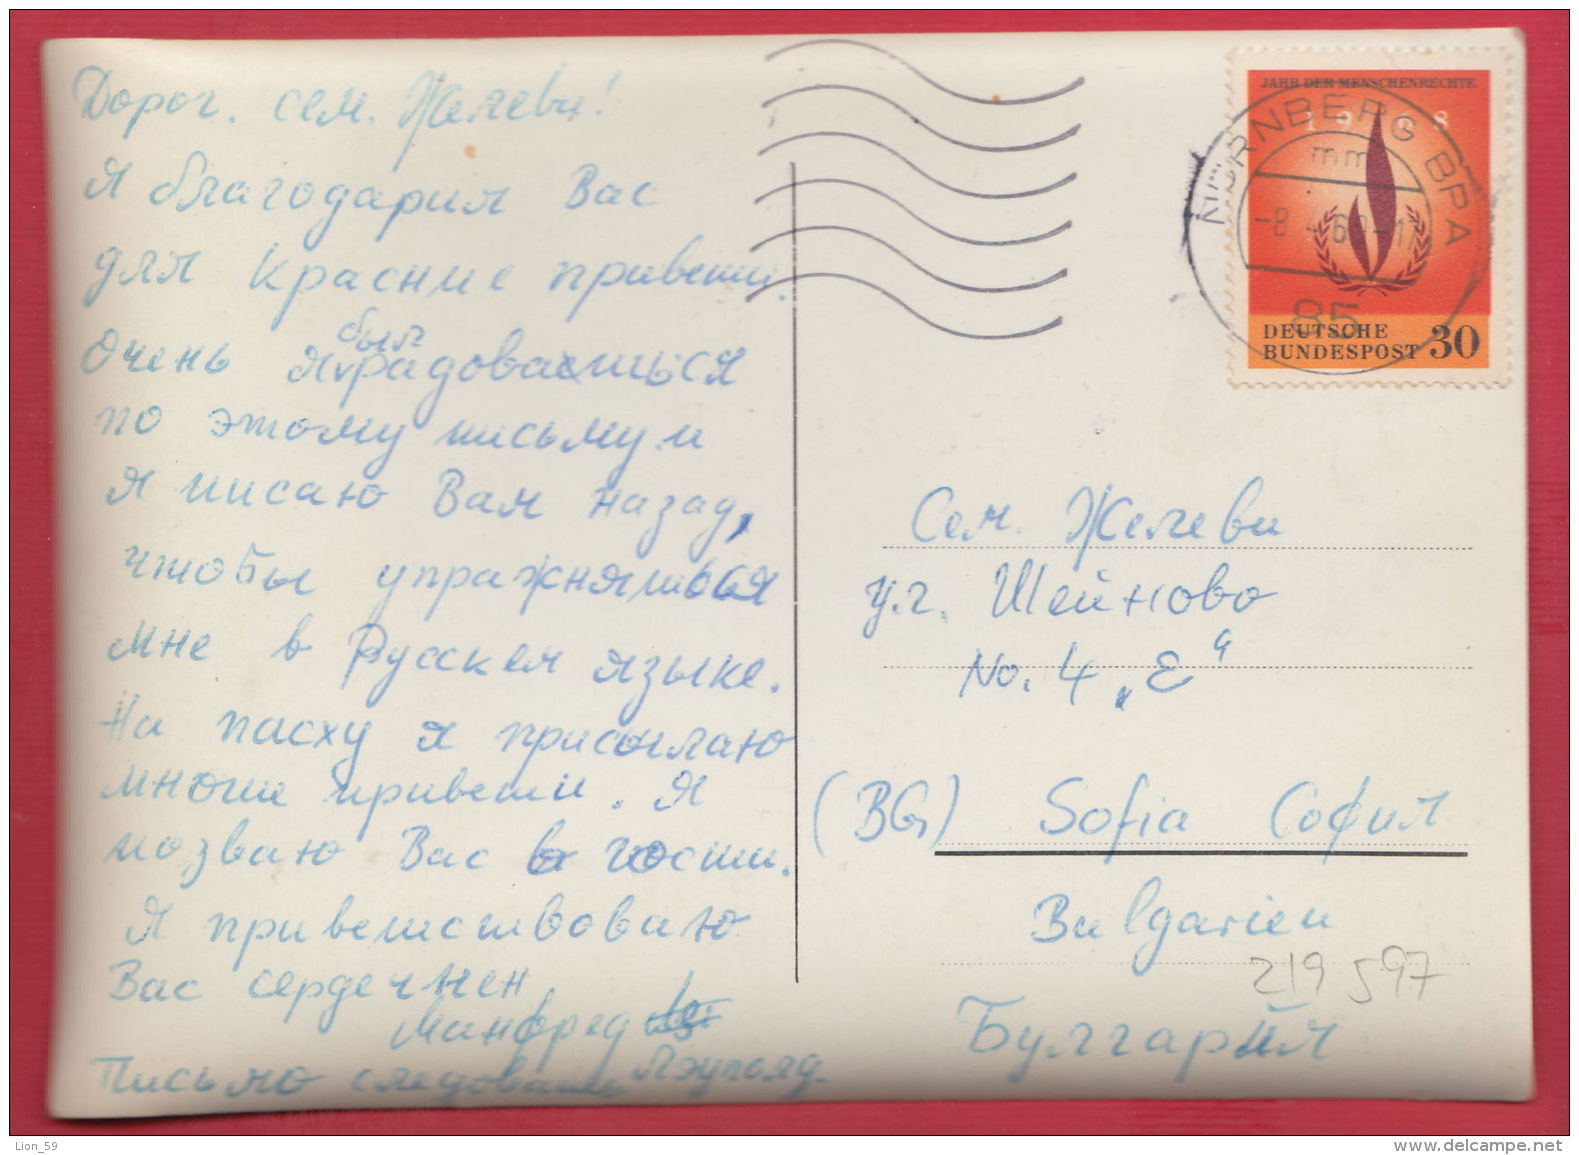 Дорог. сем. Желеви!
Я благодарил Вас
для Красние привети.
Очень я был радоваться
по этому письму и
я писаю Вам назад,
чтобы упражняться
мне в Русскем языке.
На пасху я присылаю
многие привети. Я
позваю Вас в гости.
Я приветствоваю
Вас сердечнен
Манфред
Лэуполд.
Письмо следовать
JAHR DER MENSCHENRECHTE
1968
NÜRNBERG BPA
mm
-8.4.69-17
85
DEUTSCHE
BUNDESPOST 30
Сем. Желеви
ул. Шейново
No. 4 „Е“
(BG) Sofia София
Bulgarien
219 597
Булгария
Lion_59
www.delcampe.net